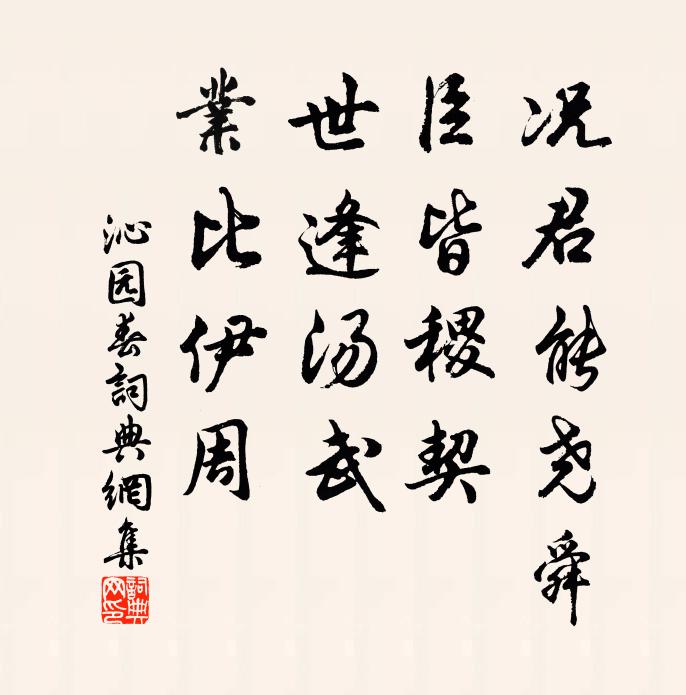 况君能尧舜
臣皆稷契
世逢汤武
業比伊周
沁园春詞典網集
詞典网印